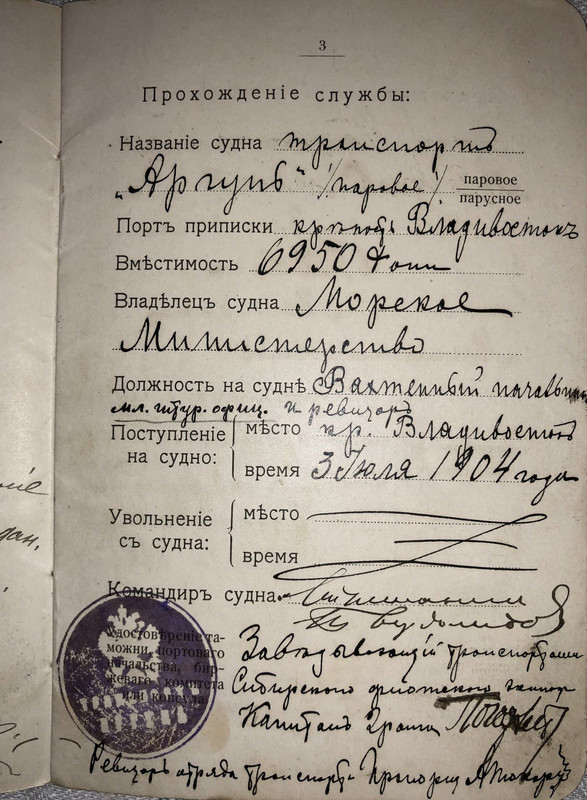 3
Прохожденіе службы:
Названіе судна транспортъ
„Аргунь“ /паровое/ паровое
парусное
Портъ приписки крѣпость Владивостокъ
Вмѣстимость 6950 тонн
Владѣлецъ судна Морское
Министерство
Должность на суднѣ Вахтенный начальник
мл. штур. офиц. и ревизоръ
Поступленіе на судно: мѣсто кр. Владивостокъ
время 3 Іюля 1904 года
Увольненіе съ судна: мѣсто
время
Командиръ судна
Удостовѣреніе та-
можни, портоваго
начальства, бир-
жеваго комитета
или консула
Завѣдывающій транспортами
Сибирскаго флотскаго экипаж
Капитанъ 2 ранга
Ревизоръ отряда транспорт Прапорщ